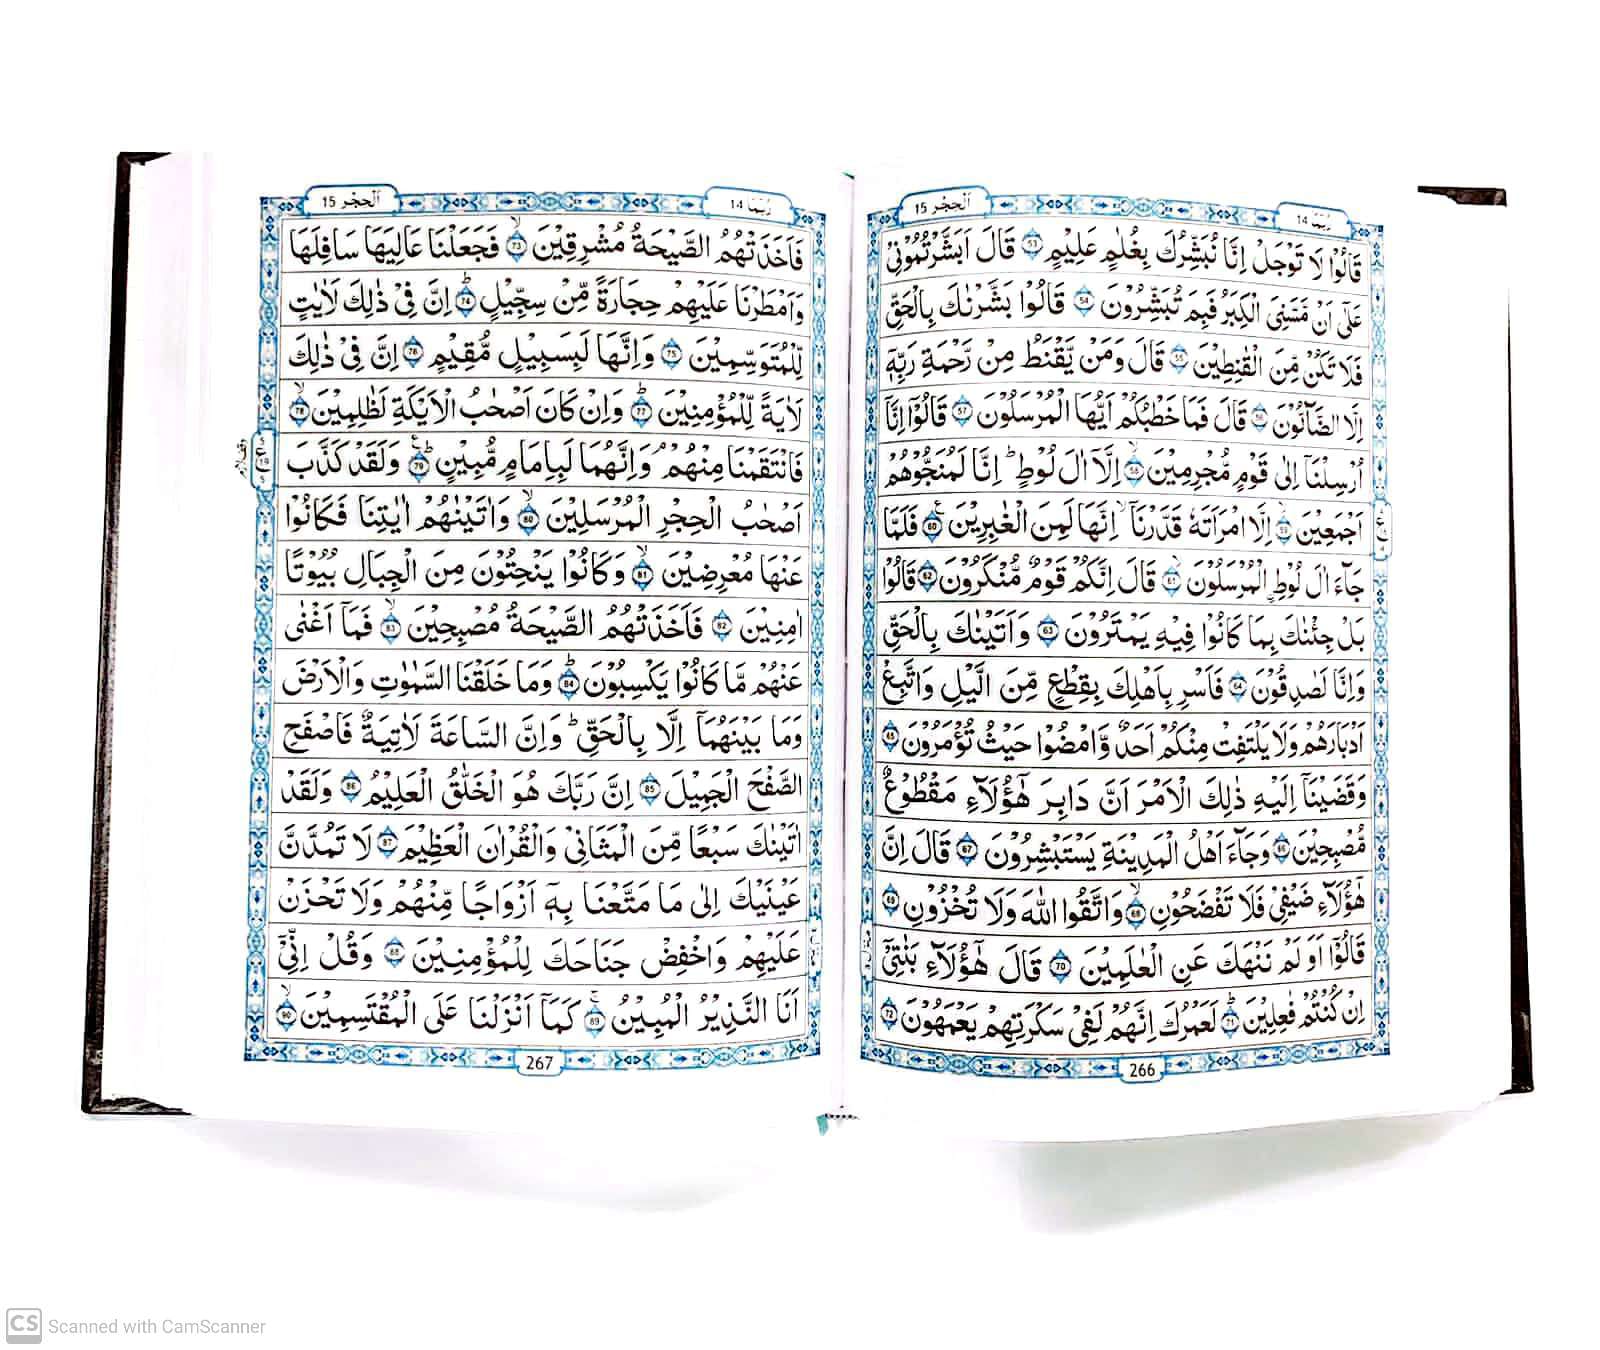 رُبَمَا 14
اَلْحِجْر 15
قَالُوْا لَا تَوْجَلْ اِنَّا نُبَشِّرُكَ بِغُلٰمٍ عَلِيْمٍ 53 قَالَ اَبَشَّرْتُمُوْنِيْ
عَلٰٓى اَنْ مَّسَّنِيَ الْكِبَرُ فَبِمَ تُبَشِّرُوْنَ 54 قَالُوْا بَشَّرْنٰكَ بِالْحَقِّ
فَلَا تَكُنْ مِّنَ الْقٰنِطِيْنَ 55 قَالَ وَمَنْ يَّقْنَطُ مِنْ رَّحْمَةِ رَبِّهٖٓ
اِلَّا الضَّآلُّوْنَ 56 قَالَ فَمَا خَطْبُكُمْ اَيُّهَا الْمُرْسَلُوْنَ 57 قَالُوْٓا اِنَّآ
اُرْسِلْنَآ اِلٰى قَوْمٍ مُّجْرِمِيْنَ 58 اِلَّآ اٰلَ لُوْطٍ ؕ اِنَّا لَمُنَجُّوْهُمْ
اَجْمَعِيْنَ 59 اِلَّا امْرَاَتَهٗ قَدَّرْنَآ اِنَّهَا لَمِنَ الْغٰبِرِيْنَ 60 فَلَمَّا
جَآءَ اٰلَ لُوْطِ ۨالْمُرْسَلُوْنَ 61 قَالَ اِنَّكُمْ قَوْمٌ مُّنْكَرُوْنَ 62 قَالُوْا
بَلْ جِئْنٰكَ بِمَا كَانُوْا فِيْهِ يَمْتَرُوْنَ 63 وَاَتَيْنٰكَ بِالْحَقِّ
وَاِنَّا لَصٰدِقُوْنَ 64 فَاَسْرِ بِاَهْلِكَ بِقِطْعٍ مِّنَ الَّيْلِ وَاتَّبِعْ
اَدْبَارَهُمْ وَلَا يَلْتَفِتْ مِنْكُمْ اَحَدٌ وَّامْضُوْا حَيْثُ تُؤْمَرُوْنَ 65
وَقَضَيْنَآ اِلَيْهِ ذٰلِكَ الْاَمْرَ اَنَّ دَابِرَ هٰٓؤُلَآءِ مَقْطُوْعٌ
مُّصْبِحِيْنَ 66 وَجَآءَ اَهْلُ الْمَدِيْنَةِ يَسْتَبْشِرُوْنَ 67 قَالَ اِنَّ
هٰٓؤُلَآءِ ضَيْفِيْ فَلَا تَفْضَحُوْنِ 68 وَاتَّقُوا اللّٰهَ وَلَا تُخْزُوْنِ 69
قَالُوْٓا اَوَلَمْ نَنْهَكَ عَنِ الْعٰلَمِيْنَ 70 قَالَ هٰٓؤُلَآءِ بَنٰتِيْٓ
اِنْ كُنْتُمْ فٰعِلِيْنَ 71 لَعَمْرُكَ اِنَّهُمْ لَفِيْ سَكْرَتِهِمْ يَعْمَهُوْنَ 72
266
رُبَمَا 14
اَلْحِجْر 15
فَاَخَذَتْهُمُ الصَّيْحَةُ مُشْرِقِيْنَ 73 فَجَعَلْنَا عَالِيَهَا سَافِلَهَا
وَاَمْطَرْنَا عَلَيْهِمْ حِجَارَةً مِّنْ سِجِّيْلٍ 74 اِنَّ فِيْ ذٰلِكَ لَاٰيٰتٍ
لِّلْمُتَوَسِّمِيْنَ 75 وَاِنَّهَا لَبِسَبِيْلٍ مُّقِيْمٍ 76 اِنَّ فِيْ ذٰلِكَ
لَاٰيَةً لِّلْمُؤْمِنِيْنَ 77 وَاِنْ كَانَ اَصْحٰبُ الْاَيْكَةِ لَظٰلِمِيْنَ 78
فَانْتَقَمْنَا مِنْهُمْ وَاِنَّهُمَا لَبِاِمَامٍ مُّبِيْنٍ 79 وَلَقَدْ كَذَّبَ
اَصْحٰبُ الْحِجْرِ الْمُرْسَلِيْنَ 80 وَاٰتَيْنٰهُمْ اٰيٰتِنَا فَكَانُوْا
عَنْهَا مُعْرِضِيْنَ 81 وَكَانُوْا يَنْحِتُوْنَ مِنَ الْجِبَالِ بُيُوْتًا
اٰمِنِيْنَ 82 فَاَخَذَتْهُمُ الصَّيْحَةُ مُصْبِحِيْنَ 83 فَمَآ اَغْنٰى
عَنْهُمْ مَّا كَانُوْا يَكْسِبُوْنَ 84 وَمَا خَلَقْنَا السَّمٰوٰتِ وَالْاَرْضَ
وَمَا بَيْنَهُمَآ اِلَّا بِالْحَقِّ ؕ وَاِنَّ السَّاعَةَ لَاٰتِيَةٌ فَاصْفَحِ
الصَّفْحَ الْجَمِيْلَ 85 اِنَّ رَبَّكَ هُوَ الْخَلّٰقُ الْعَلِيْمُ 86 وَلَقَدْ
اٰتَيْنٰكَ سَبْعًا مِّنَ الْمَثَانِيْ وَالْقُرْاٰنَ الْعَظِيْمَ 87 لَا تَمُدَّنَّ
عَيْنَيْكَ اِلٰى مَا مَتَّعْنَا بِهٖٓ اَزْوَاجًا مِّنْهُمْ وَلَا تَحْزَنْ
عَلَيْهِمْ وَاخْفِضْ جَنَاحَكَ لِلْمُؤْمِنِيْنَ 88 وَقُلْ اِنِّيْٓ
اَنَا النَّذِيْرُ الْمُبِيْنُ 89 كَمَآ اَنْزَلْنَا عَلَى الْمُقْتَسِمِيْنَ 90
267
CS Scanned with CamScanner